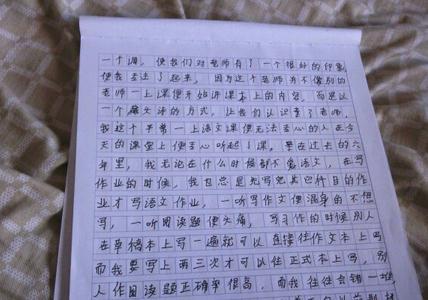 一个调，使我们对老师有了一个很好的印象
使我喜出了起来，因为这个老师并不像别的
老师一上课便开始讲课本上的内容，而是以
一个的方式，让我们认识了老师，
我这个平常一上语文课便无法专心的人在今
天的课堂上便专心听起了课，要在过去的六
年里，我无论在什么时候都不爱语文，在写
作业的时候，我也总是先写完其它科目的作
业才写语文作业，一听写作文便浑身的不想
写，一听阅读题便头痛，写习作的时候别人
在草稿本上写一遍就可以直接往作文本上写
而我要写上两三次才可以往正式本上写，别
人作阅读题正确率很高，而我往往会错一堆